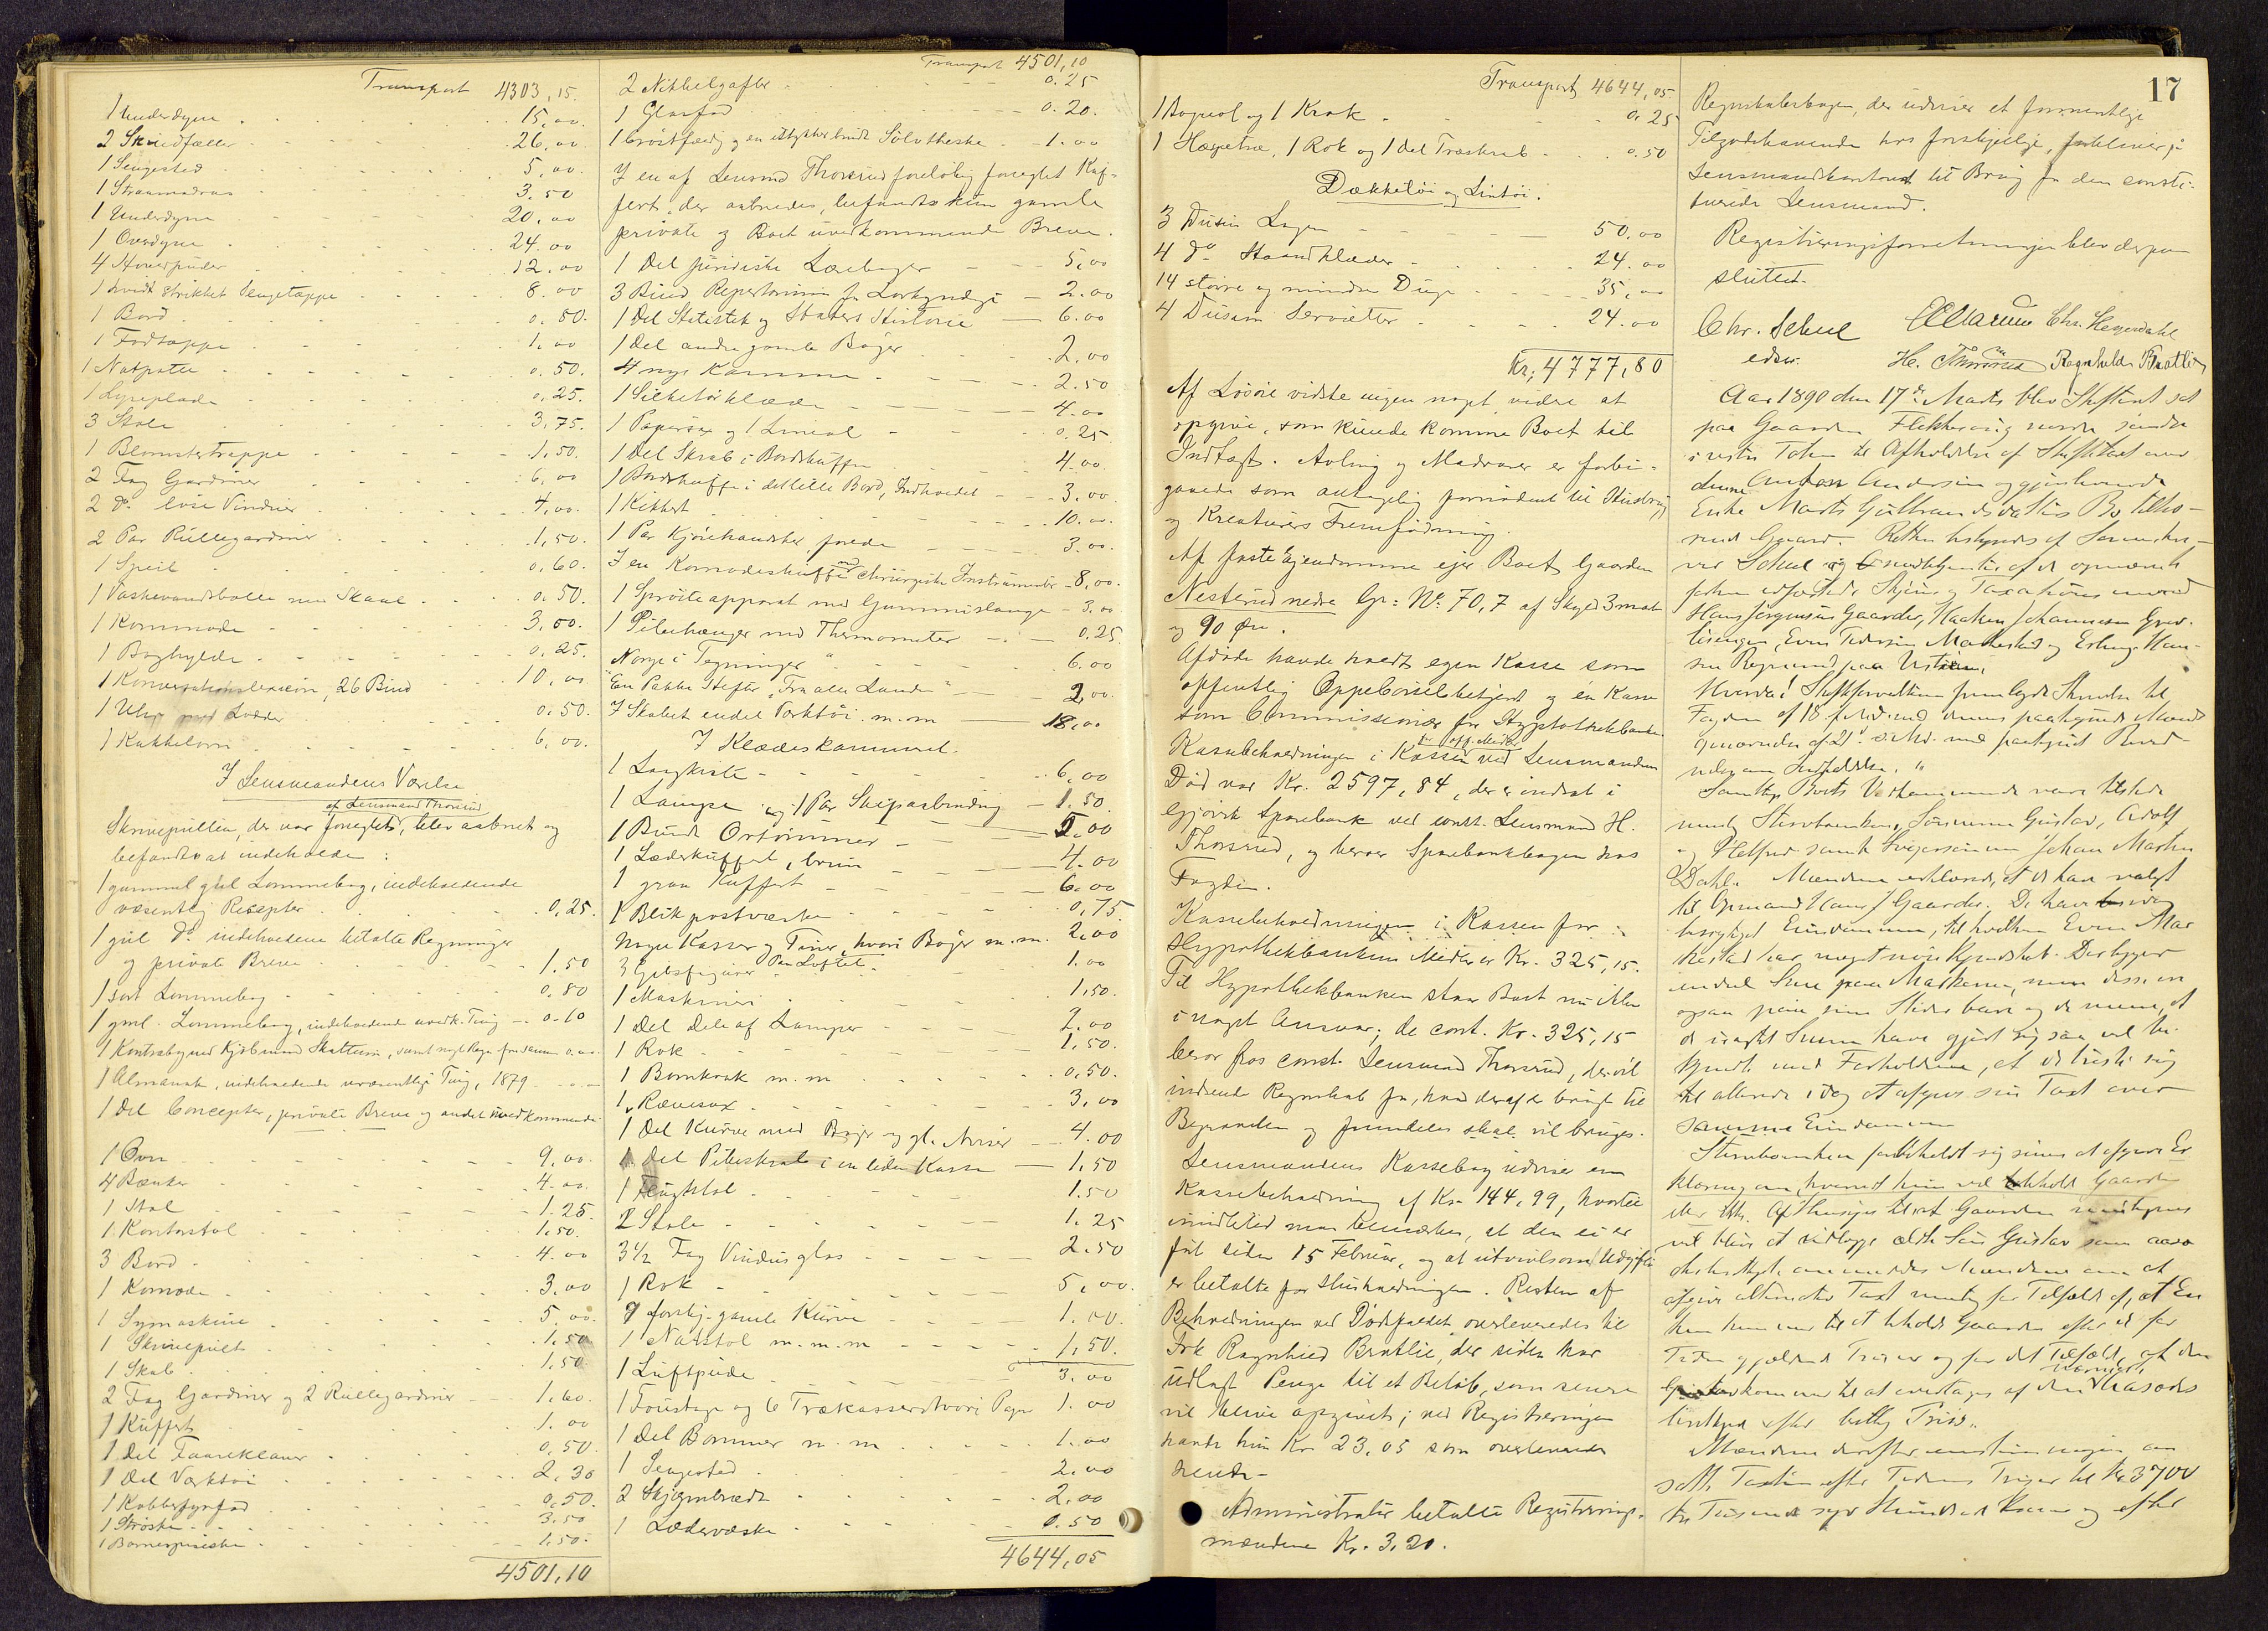 Transport 4303,15.
1 Underdyne 15,00
2 Skindfæller 26,00
1 Sengested 5,00
1 Straamadras 3.50
1 Underdyne 20.00
1 Overdyne 24.00
4 Hovedpuder 12.00
1 hvidt strikket Sengetæppe 8.00
1 Bord 0.80.
1 Fodtæppe 1,00
1 Natpotte 0.50.
1 Lyseplade 0.25.
3 Stole 3,75.
1 Blomstertrappe 1,50.
2 Fag Gardiner 6,00
2 do løse Vinduer 4,00.
2 Par Rullegardiner 1,50.
1 Speil 0,60.
1 Vaskevandsbolle med Skaal 0.50.
1 Kommode 3,00.
1 Boghylde 0,25.
1 Konversationslexicon, 26 Bind 10,00
1 Uhr med Lodder 0.50.
1 Kakkelovn 6,00.
I Lensmandens Værelse
af Lensmand Thorsrud
Skrivepulten, der var forseglet, blev aabnet og
befandtes at indeholde:
1 gammel gul Lommebog, indeholdende
væsentlig Recepter 0,25.
1 gul do indeholdene betalte Regninger
og private Breve 1.50
1 sort Lommebog 0,80
1 gml. Lommebog, indeholdende uvedk. Ting 0.10
1 Kontrabog med Kjøbmand Skattum, samt
1 Almanak, indeholdende uvæsentlige Ting, 1879
1 Del Concepter, private Breve og andet uvedkommende
1 Ovn 9,00.
4 Bænker 4.00.
1 Stol 1.25.
1 Kontorstol 1.50.
3 Bord 4.00
1 Komode 3,00
1 Symaskine 5,00.
1 Skrivepult 1.50
1 Skab 1,50.
2 Fag Gardiner og 2 Rullegardiner 1,60.
1 Kuffert 1.00
1 Del Faareklaver 0,50.
1 Del Værktøi 2,30
1 Kobberfyrfad 0,50.
1 3.50
1 1.50.
4501,10
Transport 4501,10
2 Nikkelgafler 0.25
1 Glasfad 0.20.
1 brøstfældig og en istykkerbrudt Sølvtheske 1.00
I en af Lensmd Thorsrud foreløbig forseglet Kuf-
fert, der aabnedes, befandtes kun gamle
private og Boet uvedkommende Breve.
1 Del juridiske Lovbøger 5,00
3 Bind Repertorium for Lovkyndige 2.00
1 Del Statistik og Staters Historie 6.00
1 Del andre gamle Bøger 2,00
4 nye Kamme 2.50
1 Silketørklæde 4.00
1 Papirsax og 1 Lineal 0.25
1 Del Skrab i Bordskuffen 4.00
1 Bordskuffe i det lille Bord, Indholdet 3.00
1 Kikkert 10.00.
1 Par Kjørehandsker, forede 3.00.
I en Komodeskuffe endel chirurgiske Instrumenter 8,00.
1 Sprøiteapparat med Gummislange 3.00
1 Pibehænger med Thermometer 0.25
"Norge i Tegninger" 6.00
En Pakke Hefter "Fra alle Lande" 2,00.
I Skabet endel Værktøi m.m 18,00
I Klædeskammeret.
1 Langkiste 6,00
1 Lampe og 1 Par Skiparbinding 1.50.
1 Bundt Ortømmer 5.00
1 Læderkuffert, brun 4.00
1 graa Kuffert 6.00
1 Blikpostvæske 0,75.
Nogle Kasser og Tiner, hvori Bøger m.m. 2,00
Paa Loftet.
3 Gibsfigurer 1.00
1 Maskineri 1,50.
1 Del dele af Lamper 2.00
1 Rok 1,50.
1 Bomkrak m.m 0,50.
1 Rævesax 3,00
1 Del Kurve med Bøger og gl. Aviser 4.00
1 Del Pibeskrab i en liden Kasse 1,50
1 1.50
2 Stole 1.25
3½ Fag Vinduesglas 2.50
1 Rok 5,00.
7 forskj. gamle Kurve 1.50.
1 Natstol m.m.m 1,50.
1 Luftpude 3,00
1 og 6 Trækasser hvori Papir 1.00
1 Del Bommer m.m 1.00
1 Sengested 2,00
2 Skjermbrædt 2,00
1 Lædervæske 0.50
4644,05
Transport 4644,05
1 og 1 Krak 0,25
1 Haspetræ, 1 Rok og 1 del Træskrab 0.50
Dækketøi og Lintøi.
3 Dusin Lagen 50,00
4 do Haandklæder 24.00
14 større og mindre Duge 35,00
4 Dusin Servietter 24.00
Kr. 4777,80
Af Løsøre vidste ingen noget videre at
opgive, som kunde komme Boet til
Indtægt. Avling og Madvarer er forbi-
gaaede som antagelig fornødent til Husbrug
og Kreaturers Fremfødning.
Af faste Ejendomme ejer Boet Gaarden
Nesterud nedre Gr: No. 70,7 af Skyld 3 mark
og 90 Øre.
Afdøde havde havdt egen Kasse som
offentlig Oppebørselsbetjent og én Kasse
som Commissionær for Hypothekbanken.
for off. Midler
Kassebeholdningen i Kassen ved Lensmandens
Død var Kr. 2597,84, der er indsat i
Gjøvik Sparebank ved const. Lensmand H.
Thorsrud, og beror Sparebankbogen hos
Fogden.
Kassebeholdningen i Kassen for
Hypothekbankens Midler er Kr. 325,15.
Til Hypothekbanken staar Boet nu ikke
i noget Ansvar; de cont. Kr. 325,15
beror hos const. Lensmand Thorsrud, der vil
indsende Regnskab for, hvad deraf er brugt til
Begravelsen og fremdeles skal vil bruges.
Lensmandens Kassebog udviser en
Kassebeholdning af Kr. 144,99, hvortil
imidlertid maa bemærkes, at den ei er
ført siden 15 Februar, og at utvivlsom Udgifter
er betalte for Husholdningen. Resten af
Beholdningen ved Dødsfaldet overleveredes til
Frk Ragnhild Bratlie, der siden har
udlagt Penge til et Beløb, som senere
vil blive opgivet; ved Registreringen
havde hun Kr 23,05 som overleveredes
Administrator betalte Registrerings-
mændene Kr. 3,20.
17
Regnskabsbogen, der udviser et formentlige
Tilgodehavende hos forskjellige, forbliver på
Lensmandskontoret til Brug for den consti-
tuerede Lensmand.
Registreringsforretningen blev derpaa
sluttet.
Chr. Schee Chr. Heyerdahl
edsv. H. Thorsrud Ragnhild Bratlie
Aar 1890 den 17de Marts blev Skifteret sat
paa Gaarden nordre søndre
i vestre Toten til Afholdelse af Skiftetaxt over
Anton Andersen og gjenlevende
Enke Marte Gulbrandsdatters Bo tilhø-
rende Gaard. Retten bestyrdes af Sorenskri-
ver Schee og
Skjøns og Taxations
Hans Jørgensen Gaarder, Haaken Johannesen
Even Pedersen og Erling Han-
sen
Hvorda! Skifteforvalteren fremlagde Skrivelse til
Fogden af 18 f. Md. med dennes paategnede Mænds
opnævnelse af 21. s. Md. med paategnet
Samtlige Boets Vedkommende vare tilstede
nemlig Stervboenken, Sønnerne Gustav, Adolf
og samt Svigersønnen Johan Martin
Dahl. Mændene erklærede, at de have valgt
til Opmand Hans J Gaarder. De have
besigtiget Eiendommen, til hvilken Even
har meget nøie Kjendskab. Der ligger
endel Sne paa Markerne, men disse
ogsaa paa sine Steder bare og de mene, at
de have gjort sig saa vel be-
kjendt med Forholdene, at de trøste sig
til allerede idag at afgive sin Taxt over
samme Eiendom
Stervboenken forbeholdt sig senere at afgive Er
klæring om, hvorvidt hun vil beholde Gaarden
eller ikke. Af Hensyn til at Gaarden
vil blive at udlægge ældste Søn Gustav som aase
desberettiget, anmodedes Mændene om at
afgive alternativ Taxt nemlig for Tilfælde af, at En
ken kommer til at beholde Gaarden efter de for
Tiden gjældende Priser og for det Tilfælde, at den
kommer til at overtages af den Aasædes
berettiget efter billig Priis.
Mændene derefter enstemmigen an
satte Taxten efter Tidens Priser til Kr 3700
tre Tusinde syv Hundrede Kroner og efter